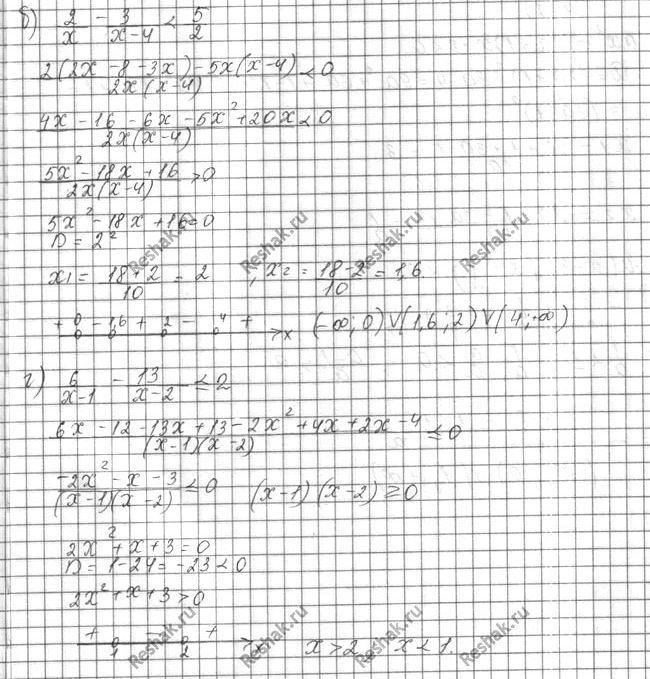 б) 2/x - 3/(x-4) < 5/2
2(2x - 8 - 3x) - 5x(x-4) / 2x(x-4) < 0
4x - 16 - 6x - 5x² + 20x / 2x(x-4) < 0
5x² - 18x + 16 / 2x(x-4) > 0
5x² - 18x + 16 = 0
D = 2²
x₁ = (18+2)/10 = 2 , x₂ = (18-2)/10 = 1,6.
+ 0 - 1,6 + 2 - 4 + x (-∞; 0) ∨ (1,6; 2) ∨ (4; +∞)
г) 6/(x-1) - 13/(x-2) ≤ 2
6x - 12 - 13x + 13 - 2x² + 4x + 2x - 4 / (x-1)(x-2) ≤ 0
-2x² - x - 3 / (x-1)(x-2) ≤ 0 (x-1)(x-2) ≥ 0
2x² + x + 3 = 0
D = 1 - 24 = -23 < 0
2x² + x + 3 > 0
+ 1 - 2 + x x > 2 x < 1.
Reshak.ru
Reshak.ru
Reshak.ru
Reshak.ru
Reshak.ru
Reshak.ru